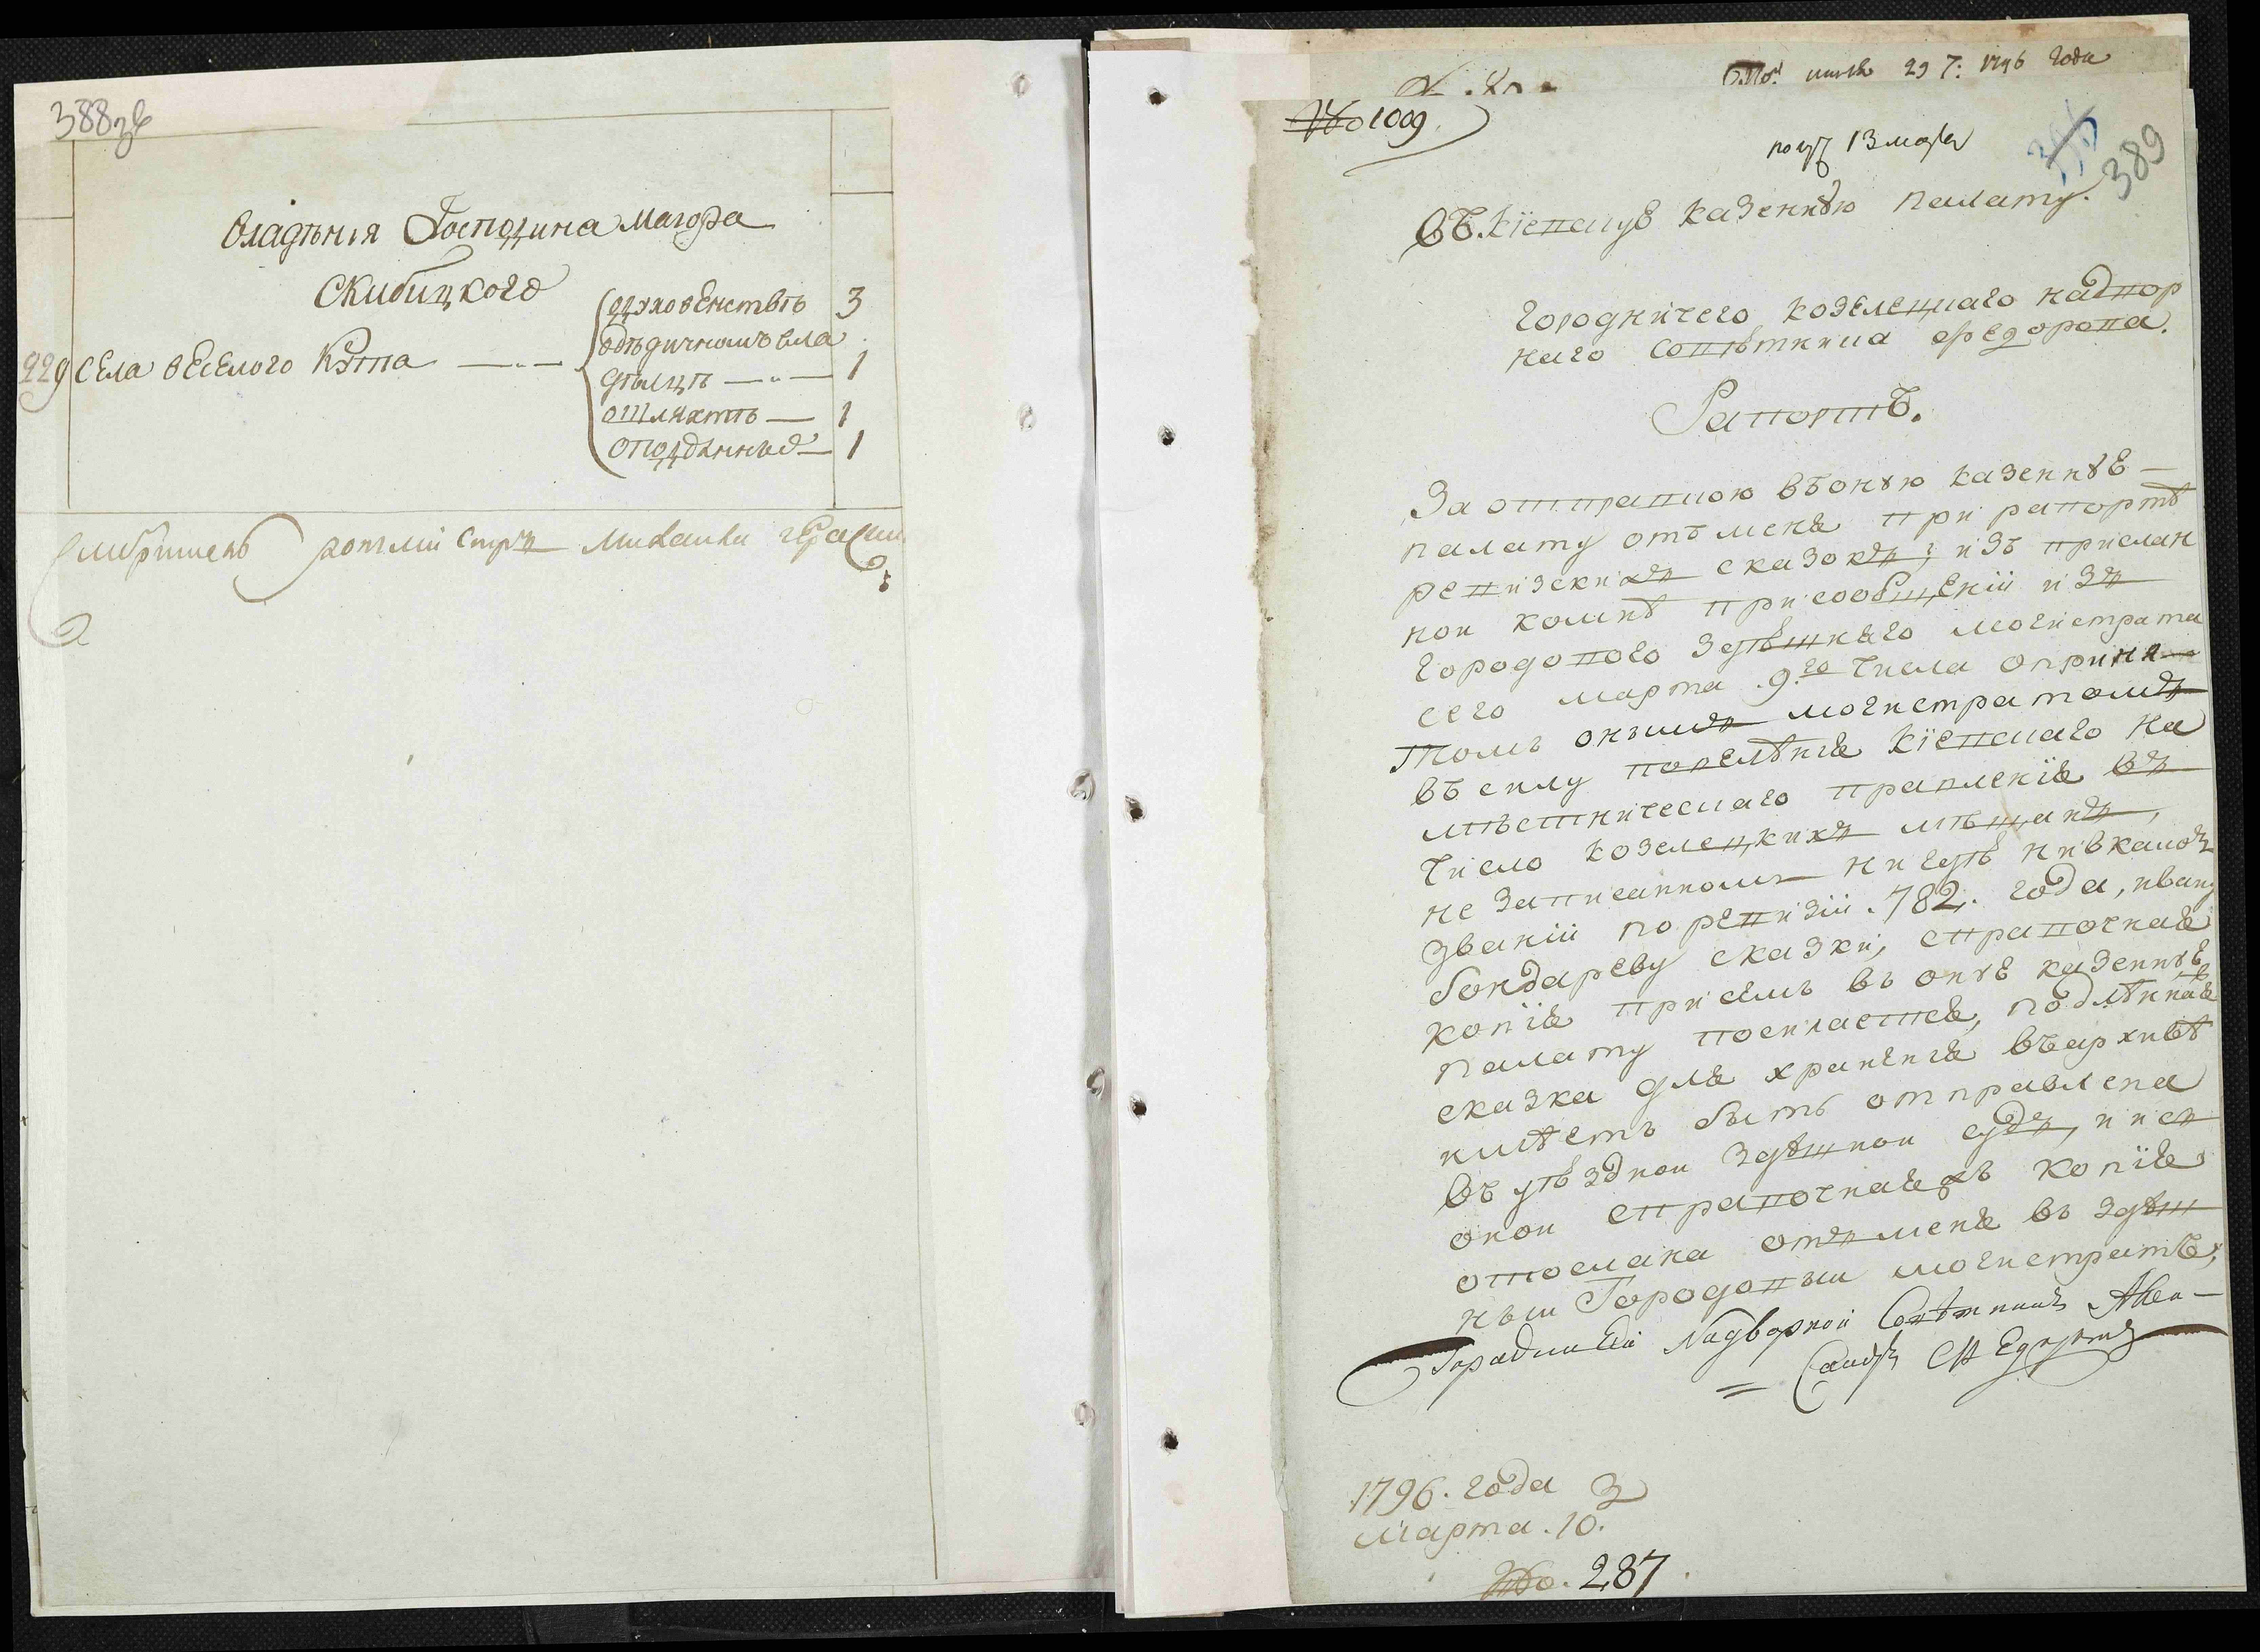 388зв
владѣния Господина маиора
Скибицкого
229 села веселого Кута
одуховенствѣ 3
овдѣдичномъ вла
дѣлцѣ 1
ошляхтѣ 1
оподданныхъ 1
№ 1009
1796 года
получ 13 марта
389
Въ Кїевскую казенную палату.
городничего козелецкаго надвор
наго совѣтника федорова.
Рапортъ.
За отправкою въоную казенную
палату отъ меня при рапортѣ
ревизскихъ сказокъ; изъ прислан
ной комнѣ присообщенїи изъ
городоваго здѣшняго могистрата
сего марта 9.го числа опринятомъ
онымъ могистратомъ
въ силу повелѣнїя кїевскаго на
мѣстническаго правленїя въ
число козелецкихъ мѣщанъ,
не записанномъ нигдѣ нивкакомъ
званїи поревизїи 782. года, ивану
бондареву сказки, справочная
копїя присемъ въ оную казенную
палату посилается, подлѣнная
сказка для храненїя въархивѣ
имѣетъ быть отправлена
въ уѣздной здѣшной судъ, и съ
оной справочная жъ копїя
отослана отъ меня въ здѣш
ный Городовый могистратъ;
Городничїй Надворной Совѣтникъ Алек
сандръ Федоровъ
1796. года
марта. 10.
№. 287